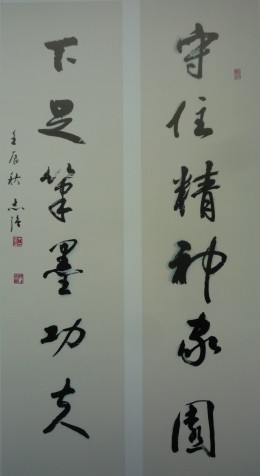 守住精神家園
下足筆墨功夫
壬辰秋志強